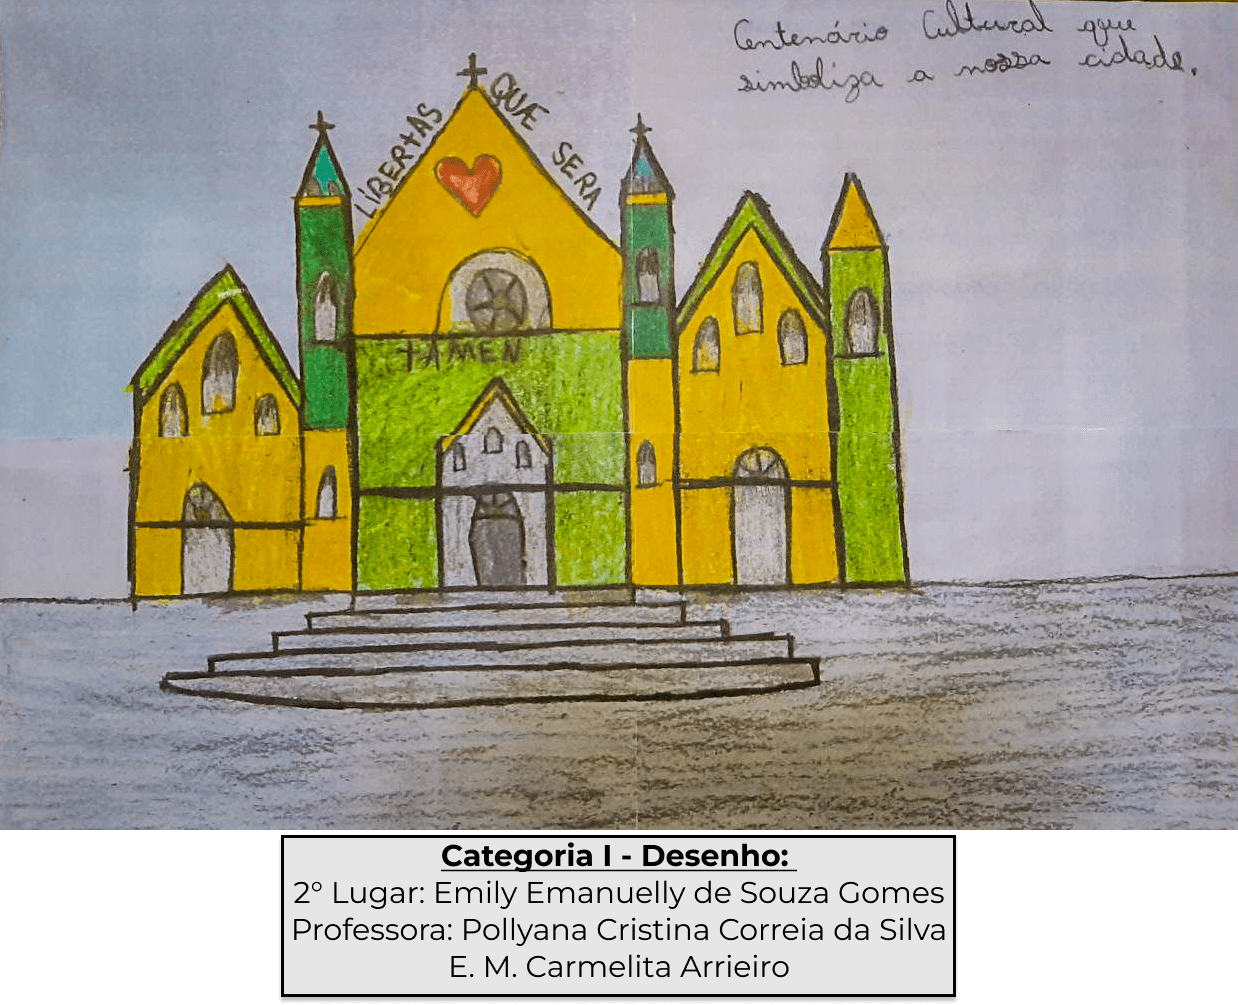 Centenário Cultural que
simboliza a nossa cidade.
LIBERTAS QUÆ SERA
TAMEN
Categoria I - Desenho:
2° Lugar: Emily Emanuelly de Souza Gomes
Professora: Pollyana Cristina Correia da Silva
E. M. Carmelita Arrieiro